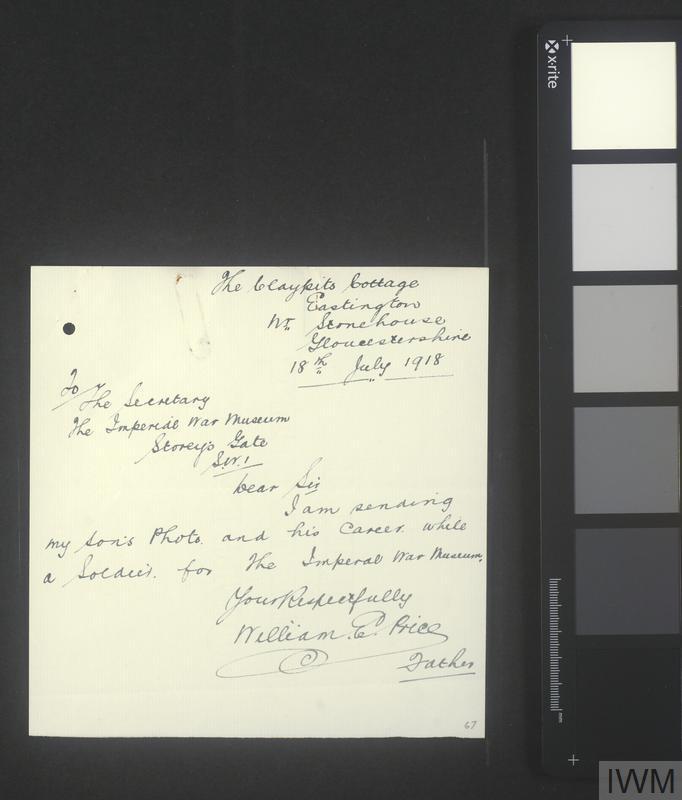 The Claypits Cottage
Eastington
Nr Stonehouse
Gloucestershire
18th July 1918
To
The Secretary
The Imperial War Museum
Storey's Gate
S.W.1
Dear Sir
I am sending
my son's Photo. and his Career. while
a Soldier. for The Imperal War Museum.
Your Respectfully
William. E. Price
Father
67
x·rite
mm
IWM